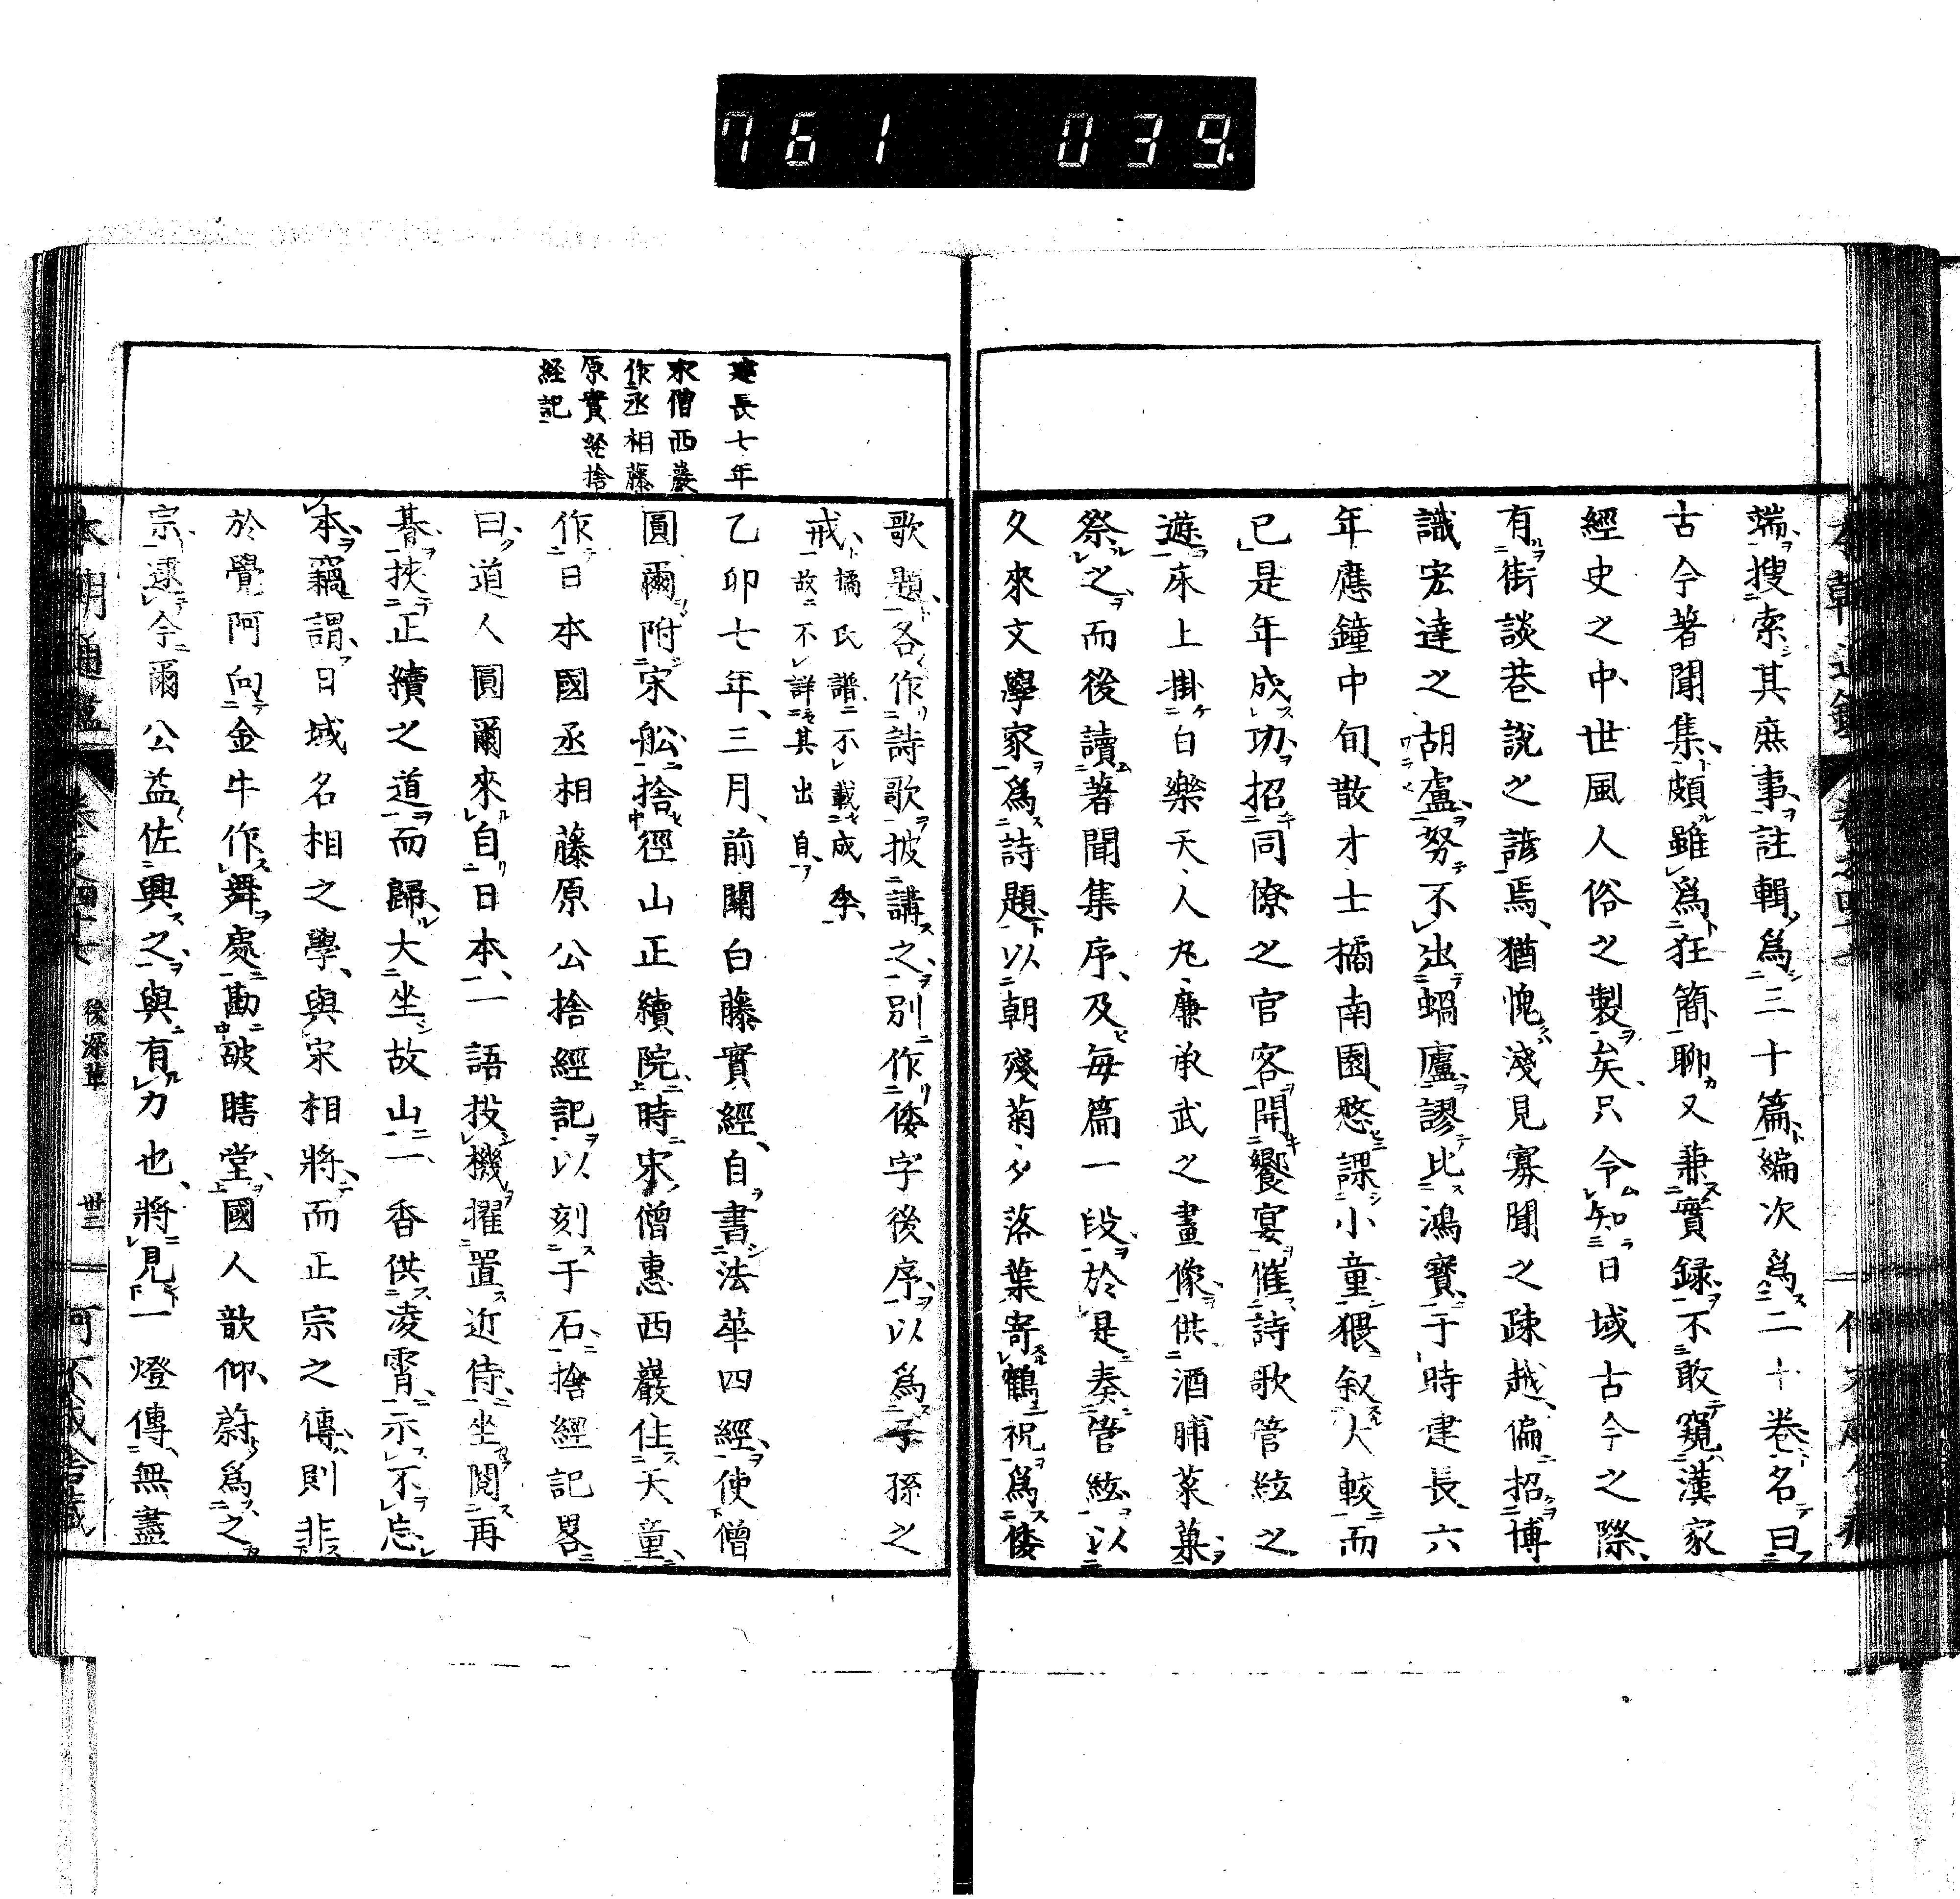 761 039.
端搜索其庶事註輯爲三十篇編次爲二十卷名曰
古今著聞集頗雖爲狂簡聊又兼實録不敢窺漢家
經史之中世風人俗之製矣只令知日域古今之際
有街談巷說之諺焉猶愧淺見寡聞之疎越偏招博
識宏達之胡盧努不出蝸廬謬比鴻寳于時建長六
年應鐘中旬散才士橘南園憖課小童猥叙大較而
已是年成功招同僚之官客開饗宴催詩歌管絃之
遊床上掛白樂天人丸廉承武之畫像供酒脯菜菓
祭之而後讀著聞集序及每篇一段於是奏管絃以
久來文學家爲詩題以朝殘菊夕落葉寄鶴祝爲倭
建長七年
宋僧西巖
作丞相藤
原實經捨
経記
歌題各作詩歌披講之別作倭字後序以爲子孫之
戒橘氏譜不載成季
故不詳其出自
乙卯七年三月前關白藤實經自書法華四經使僧
圓爾附宋舩捨徑山正續院時宋僧惠西巖住天童
作日本國丞相藤原公捨經記以刻于石捨經記畧
曰道人圓爾來自日本一語投機擢置近侍坐閲再
朞挾正續之道而歸大坐故山一香供凌霄示不忘
本竊謂日域名相之學與宋相將而正宗之傳則非
於覺阿向金牛作舞處勘破瞎堂國人歆仰蔚爲之
宗逮今爾公益佐興之與有力也將見一燈傳無盡
本朝通鑑
後深草
卅二